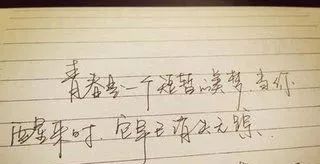 青春是一个短暂的美梦,当你
醒来时,它早已消失无踪.